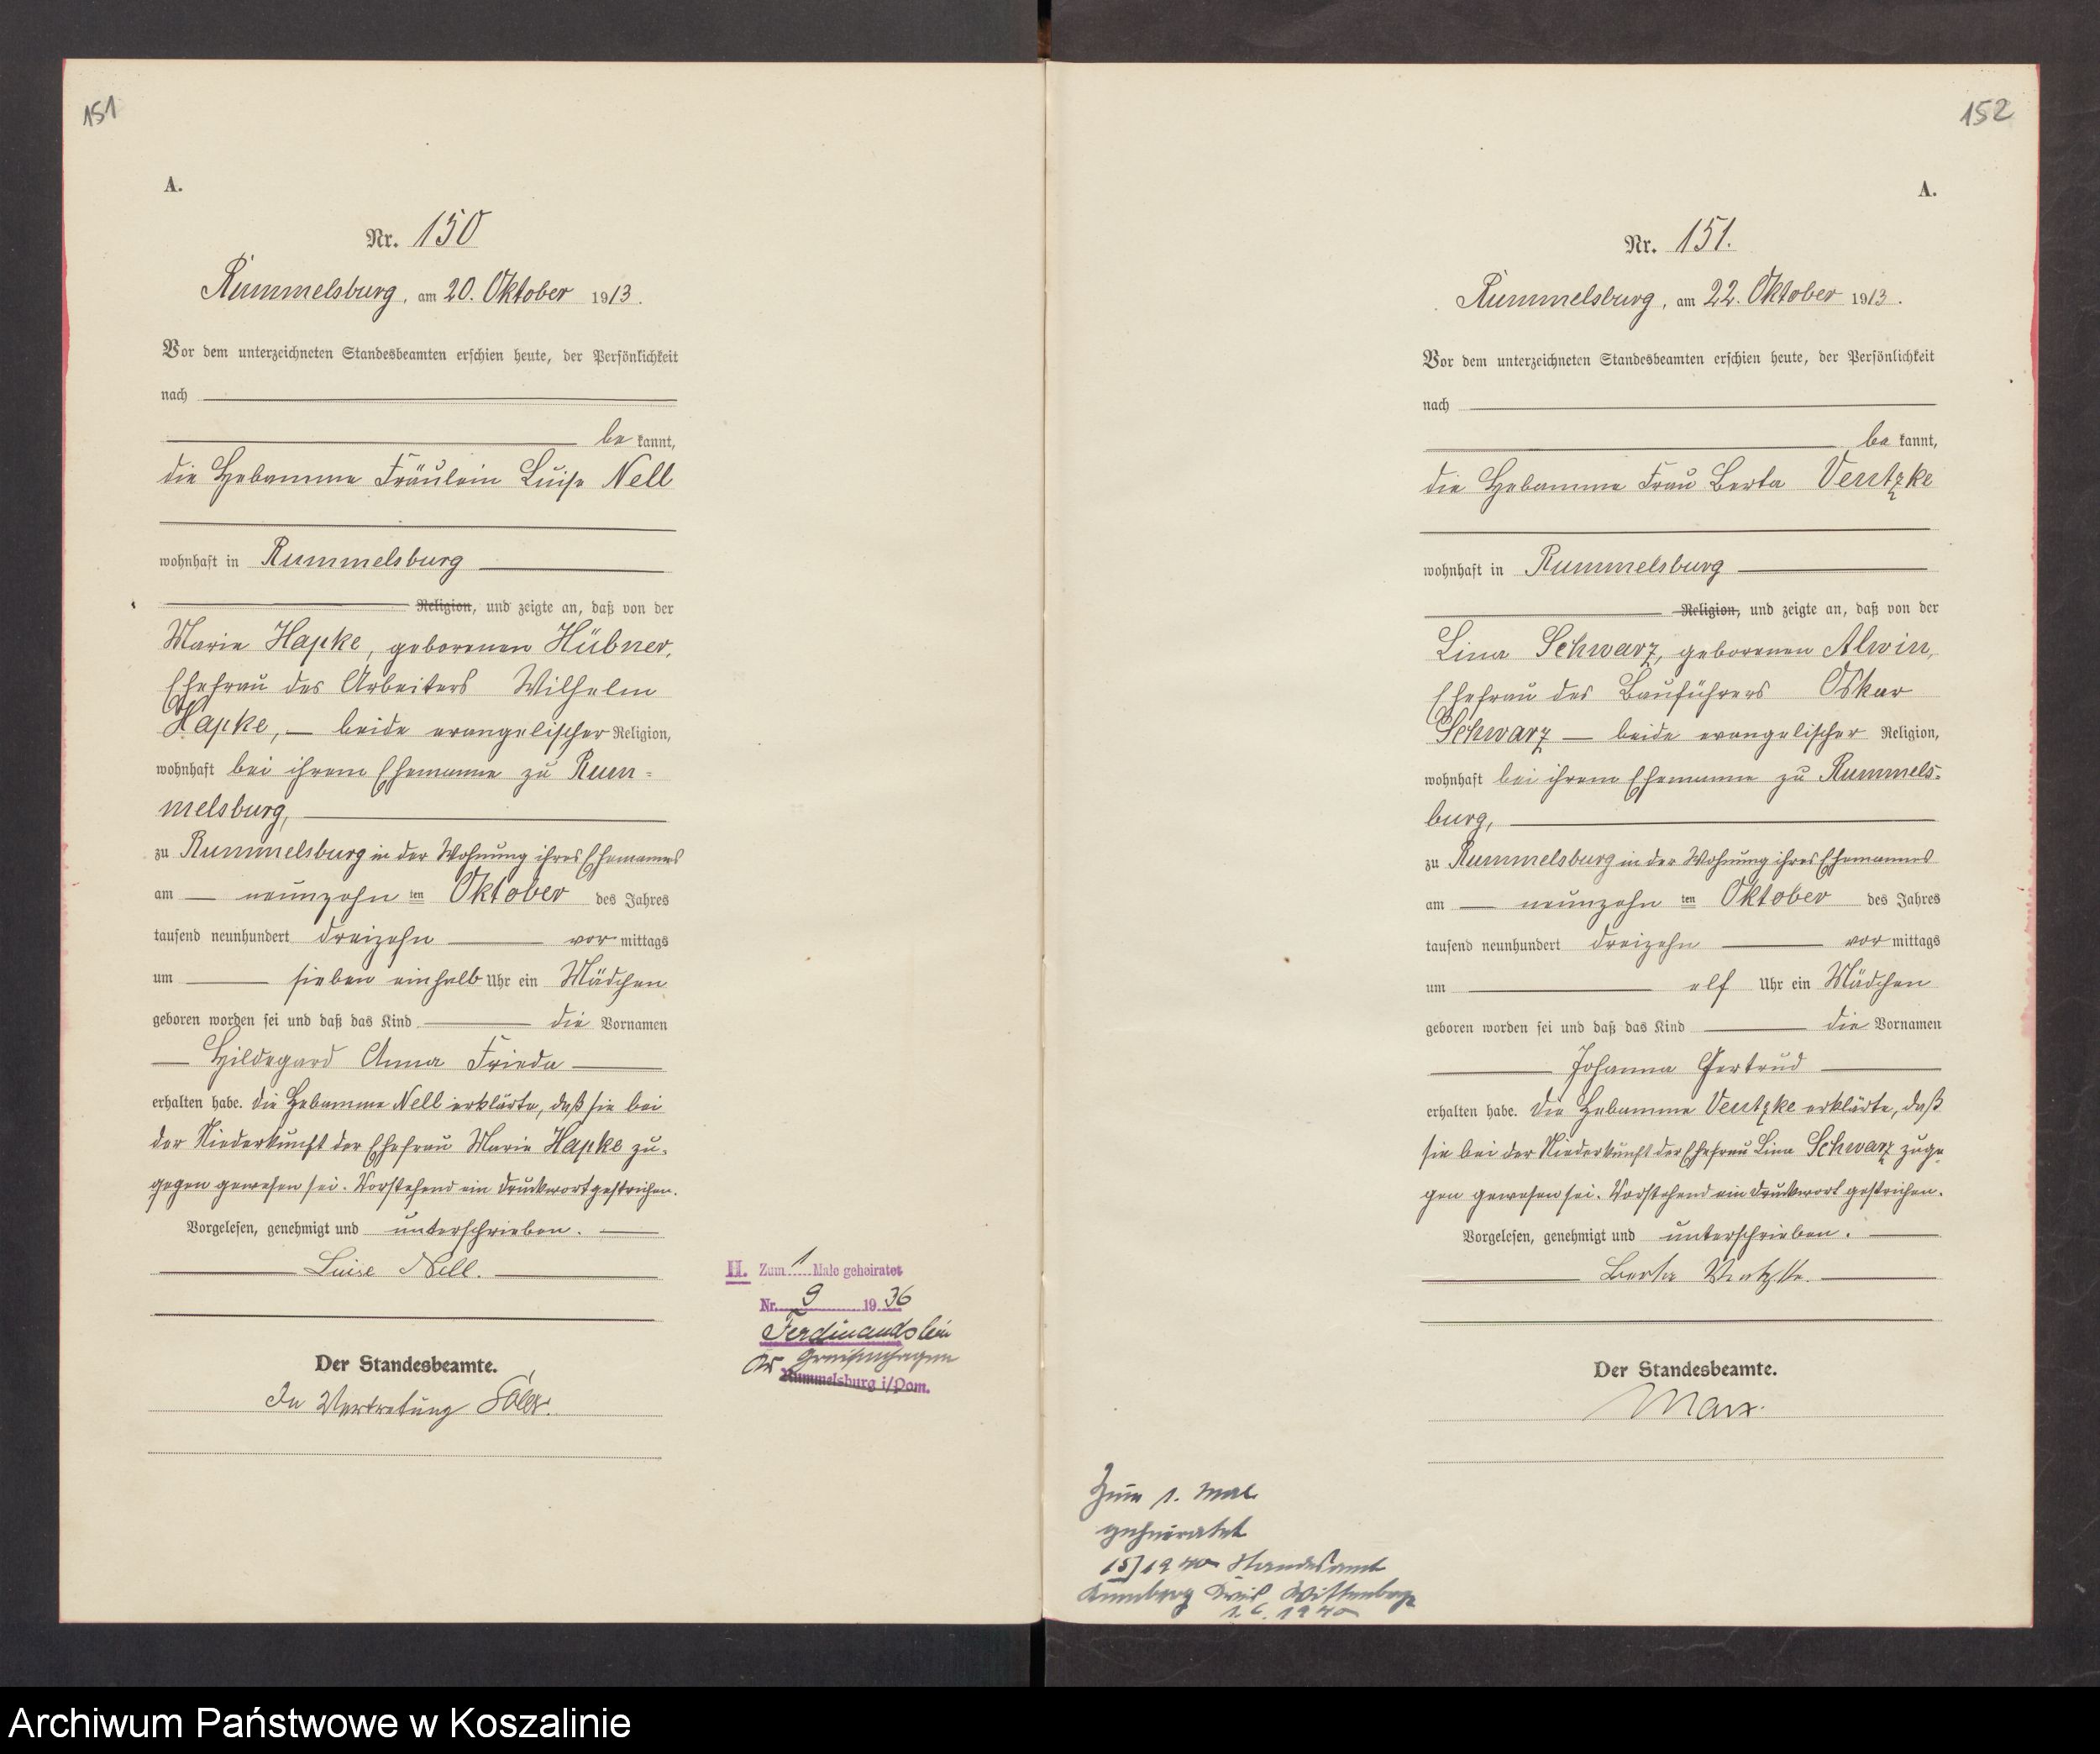 151
A.
Nr. 150
Rummelsburg, am 20. Oktober 1913.
Vor dem unterzeichneten Standesbeamten erschien heute, der Persönlichkeit
nach
be kannt,
die Hebamme Fräulein Luise Nell
wohnhaft in Rummelsburg
Religion, und zeigte an, daß von der
Marie Hapke, geborenen Hübner,
Ehefrau des Arbeiters Wilhelm
Hapke, — beide evangelischer Religion,
wohnhaft bei ihrem Ehemanne zu Rum=
melsburg,
zu Rummelsburg in der Wohnung ihres Ehemannes
am — neunzehn ten Oktober des Jahres
tausend neunhundert dreizehn vor mittags
um sieben einhalb Uhr ein Mädchen
geboren worden sei und daß das Kind die Vornamen
Hildegard Anna Frieda
erhalten habe. Die Hebamme Nell erklärte, daß sie bei
der Niederkunft der Ehefrau Marie Hapke zu=
gegen gewesen sei. Vorstehend ein Druckwort gestrichen.
Vorgelesen, genehmigt und unterschrieben.
Luise Nell.
Der Standesbeamte.
In Vertretung
H. Zum 1 Male geheiratet
Nr. 9 1936
Ferdinandstein
Kr Greifenhagen
Rummelsburg i/Pom.
152
A.
Nr. 151.
Rummelsburg, am 22. Oktober 1913.
Vor dem unterzeichneten Standesbeamten erschien heute, der Persönlichkeit
nach
be kannt,
die Hebamme Frau Berta Ventzke
wohnhaft in Rummelsburg
Religion, und zeigte an, daß von der
Lina Schwarz, geborenen Alwin,
Ehefrau des Bauführers Oskar
Schwarz — beide evangelischer Religion,
wohnhaft bei ihrem Ehemanne zu Rummels=
burg,
zu Rummelsburg in der Wohnung ihres Ehemannes
am — neunzehn ten Oktober des Jahres
tausend neunhundert dreizehn vor mittags
um elf Uhr ein Mädchen
geboren worden sei und daß das Kind die Vornamen
Johanna Gertrud
erhalten habe. Die Hebamme Ventzke erklärte, daß
sie bei der Niederkunft der Ehefrau Lina Schwarz zuge=
gen gewesen sei. Vorstehend ein Druckwort gestrichen.
Vorgelesen, genehmigt und unterschrieben.
Berta Ventzke.
Der Standesbeamte.
Marx.
Zum 1. Mal
geheiratet
15/1940 Standesamt
Annaburg Kreis Wittenberg
1.6.1940
Archiwum Państwowe w Koszalinie